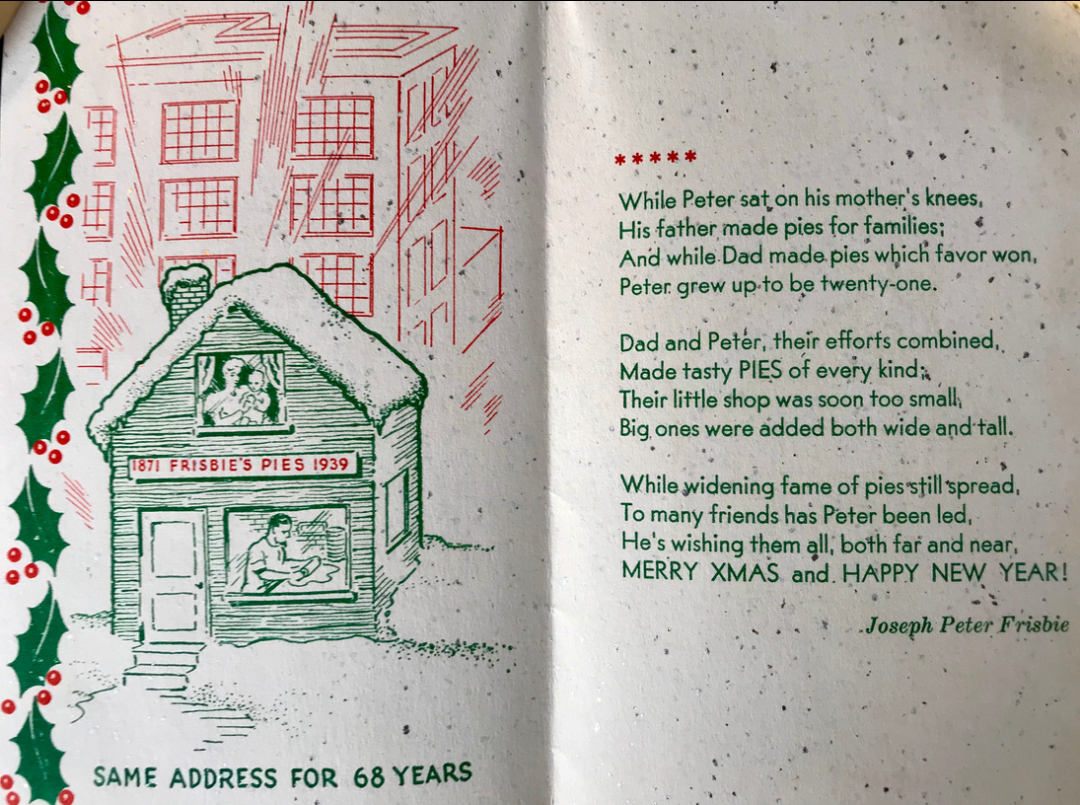 1871 FRISBIE'S PIES 1939
SAME ADDRESS FOR 68 YEARS
*****
While Peter sat on his mother's knees,
His father made pies for families;
And while Dad made pies which favor won,
Peter grew up to be twenty-one.
Dad and Peter, their efforts combined,
Made tasty PIES of every kind;
Their little shop was soon too small,
Big ones were added both wide and tall.
While widening fame of pies still spread,
To many friends has Peter been led,
He's wishing them all, both far and near,
MERRY XMAS and HAPPY NEW YEAR!
Joseph Peter Frisbie